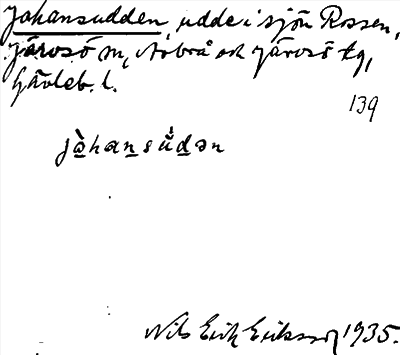 Johansudden, udde i sjön Rossen,
Järvsö sn, Arbrå och Järvsö tg,
Gävleb. l.
139
jòhansúdən
Nils Erik Eriksson 1935.